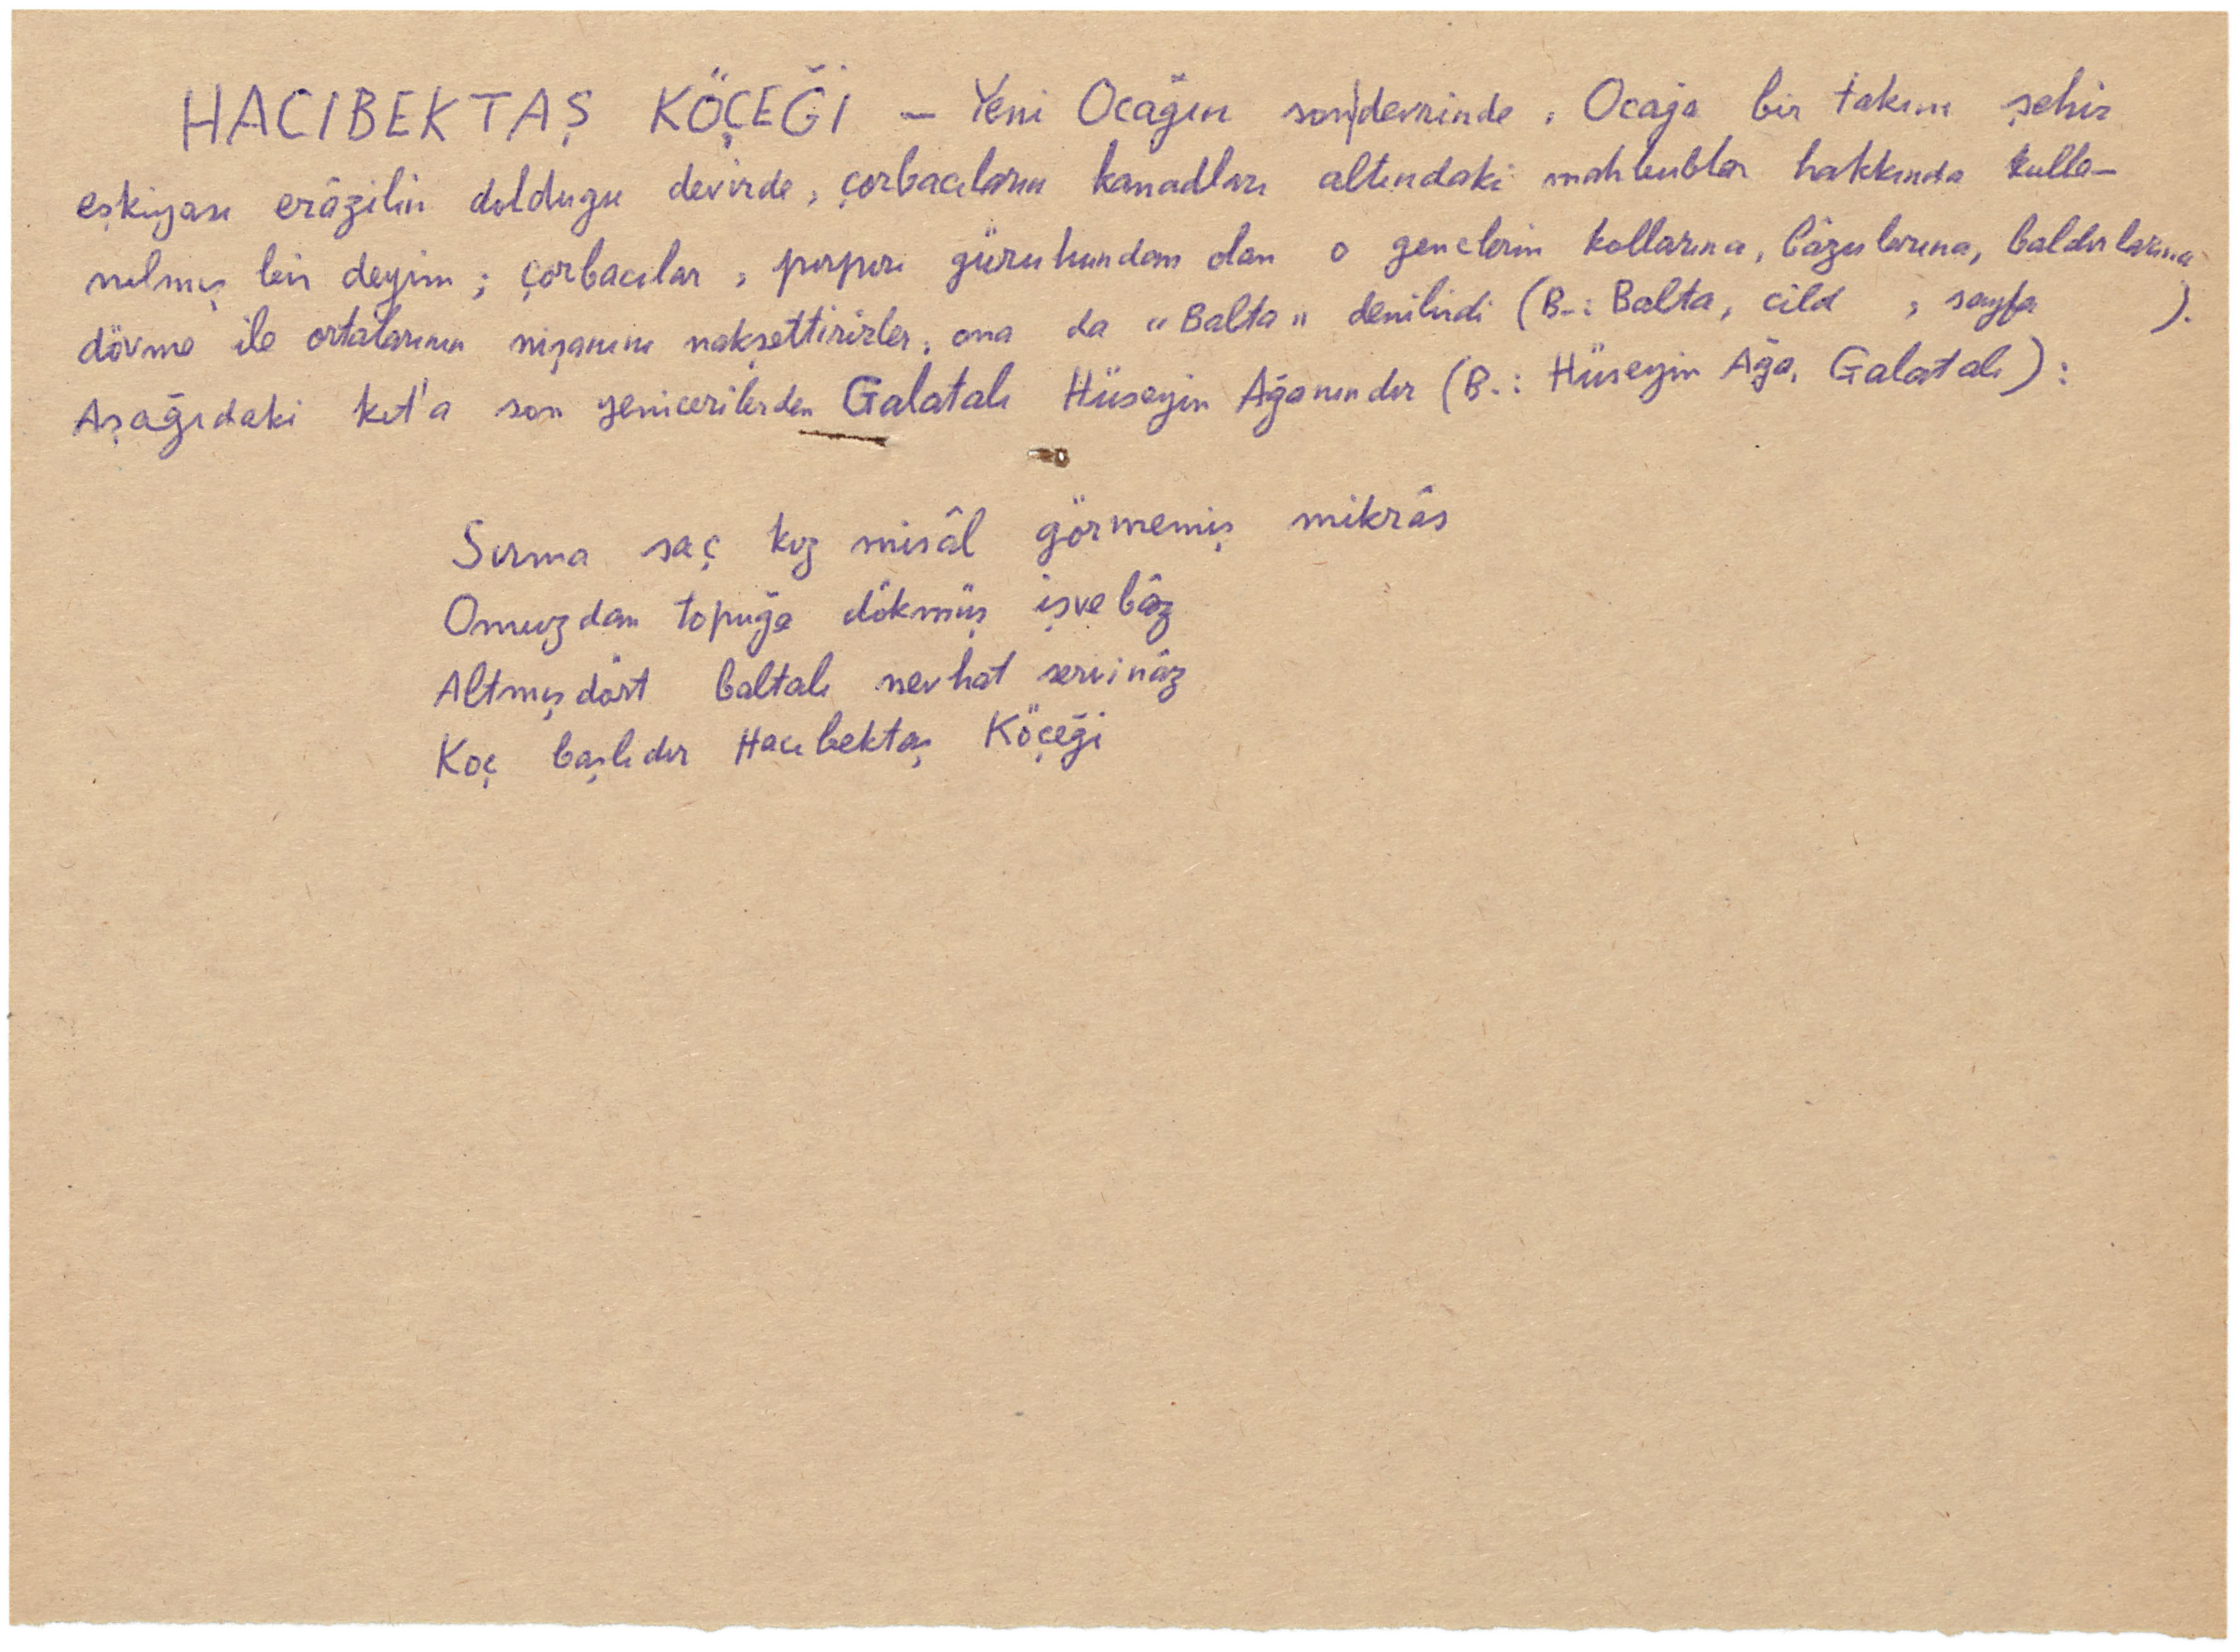 HACIBEKTAŞ KÖÇEĞİ — Yeni Ocağın son devrinde, Ocağa bir takım şehir
eşkiyası erâzilin dolduğu devirde, çorbacıların kanadları altındaki mahbublar hakkında kulla-
nılmış bir deyim; çorbacılar, pırpırı güruhundan olan o gençlerin kollarına, bâzularına, baldırlarına
dövme ile ortalarının nişanını nakşettirirler, ona da "Balta" denilirdi (B.: Balta, cild , sayfa ).
Aşağıdaki kıt'a son yeniçerilerden Galatalı Hüseyin Ağanındır (B.: Hüseyin Ağa, Galatalı):
Sırma saç kız misâl görmemiş mikrâs
Omuzdan topuğa dökmüş işvebâz
Altmışdört baltalı nevhat servinâz
Koç başlıdır Hacıbektaş Köçeği